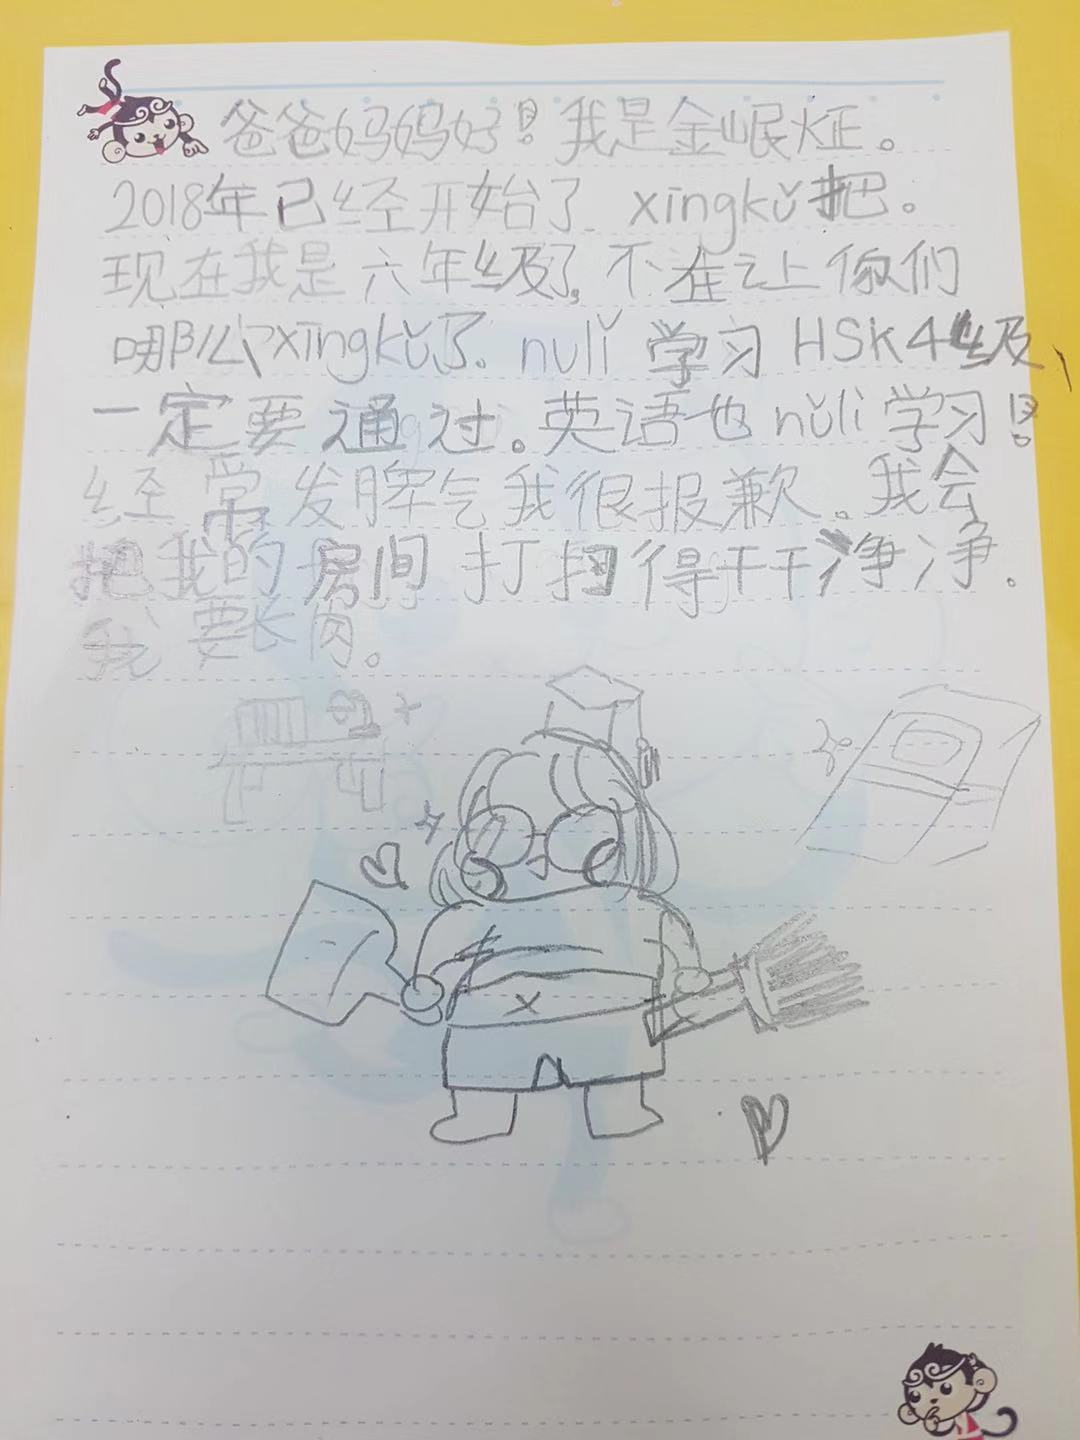 爸爸妈妈好!我是金岷炡。
2018年已经开始了. xīngkǔ把。
现在我是六年级了,不在让你们
哪么xīngkǔ了. nǔlì 学习 HSK4级
一定要通过。英语也nǔlì学习!
经常发脾气我很报歉.我会
把我的房间打扫得干干净净.
我要长肉。